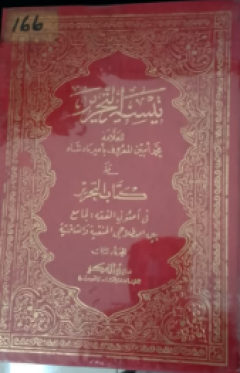 166
تيسير التحرير
للعلامة
محمد أمين المعروف بأمير بادشاه
على
كتاب التحرير
في أصول الفقه الجامع
بين اصطلاحي الحنفية والشافعية